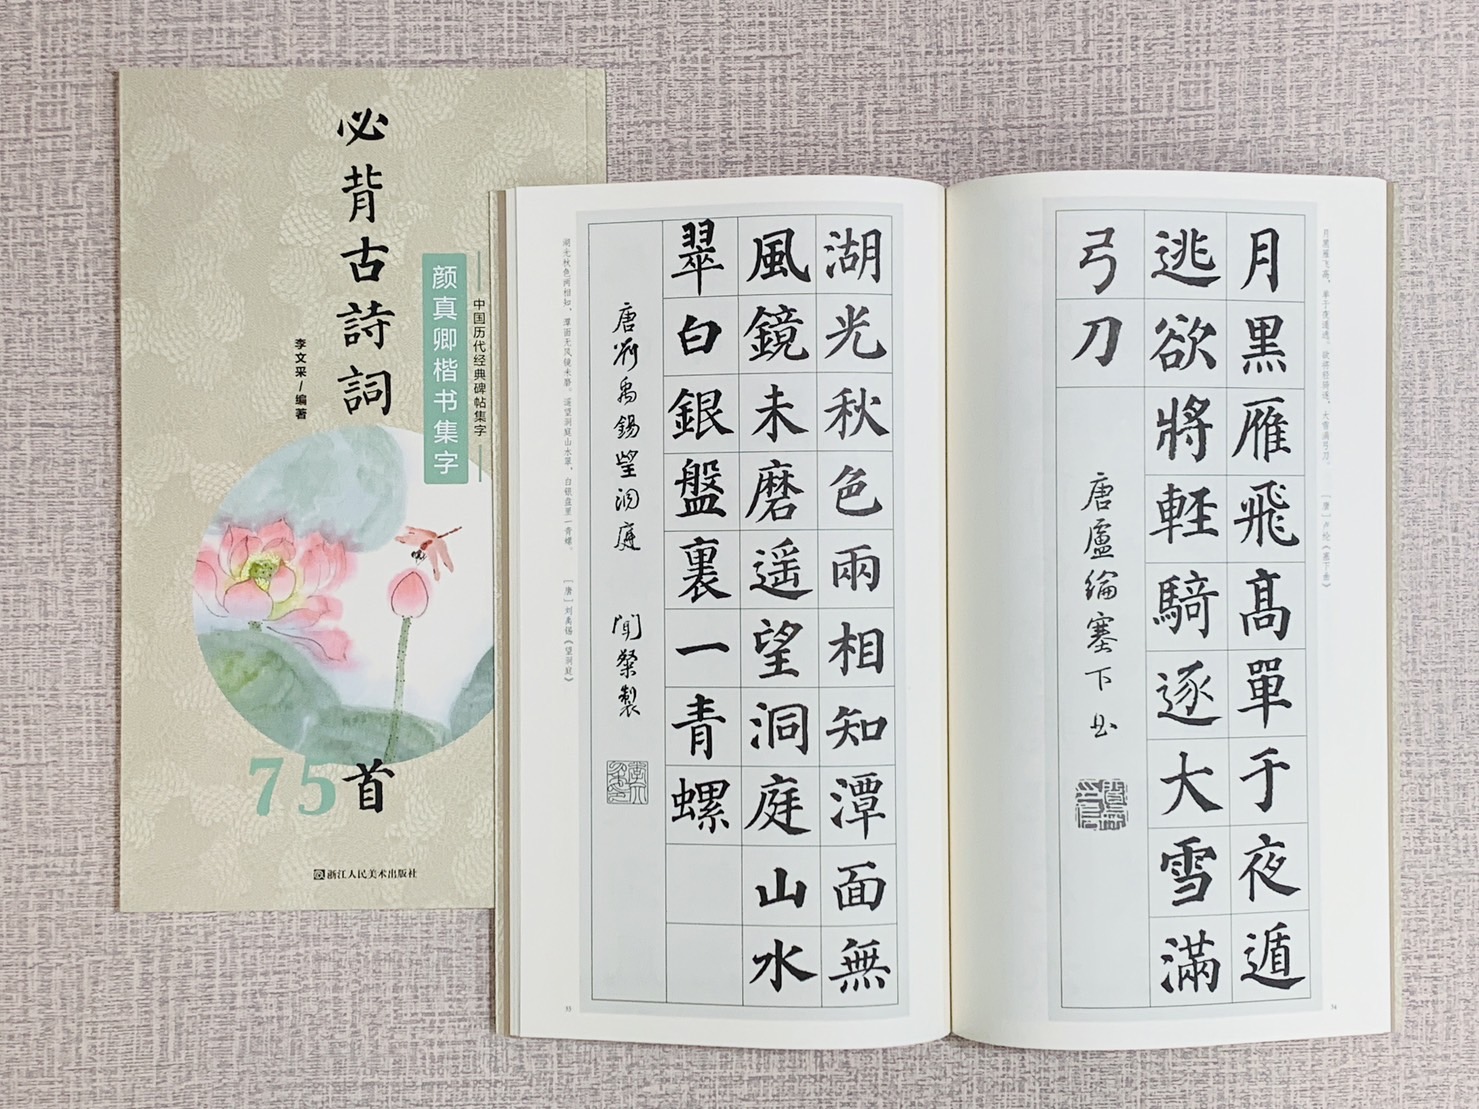 必背古詩詞
中国历代经典碑帖集字
颜真卿楷书集字
李文采/编著
75首
浙江人民美术出版社
月黑雁飞高,单于夜遁逃。欲将轻骑逐,大雪满弓刀。 [唐]卢纶《塞下曲》
月黑雁飛髙單于夜遁
逃欲將軽騎逐大雪滿
弓刀
唐盧綸塞下曲
54
湖光秋色兩相知潭面無
風鏡未磨遥望洞庭山水
翠白銀盤裏一青螺
唐劉禹錫望洞庭 聞製
湖光秋色两相知,潭面无风镜未磨。遥望洞庭山水翠,白银盘里一青螺。 [唐]刘禹锡《望洞庭》
55